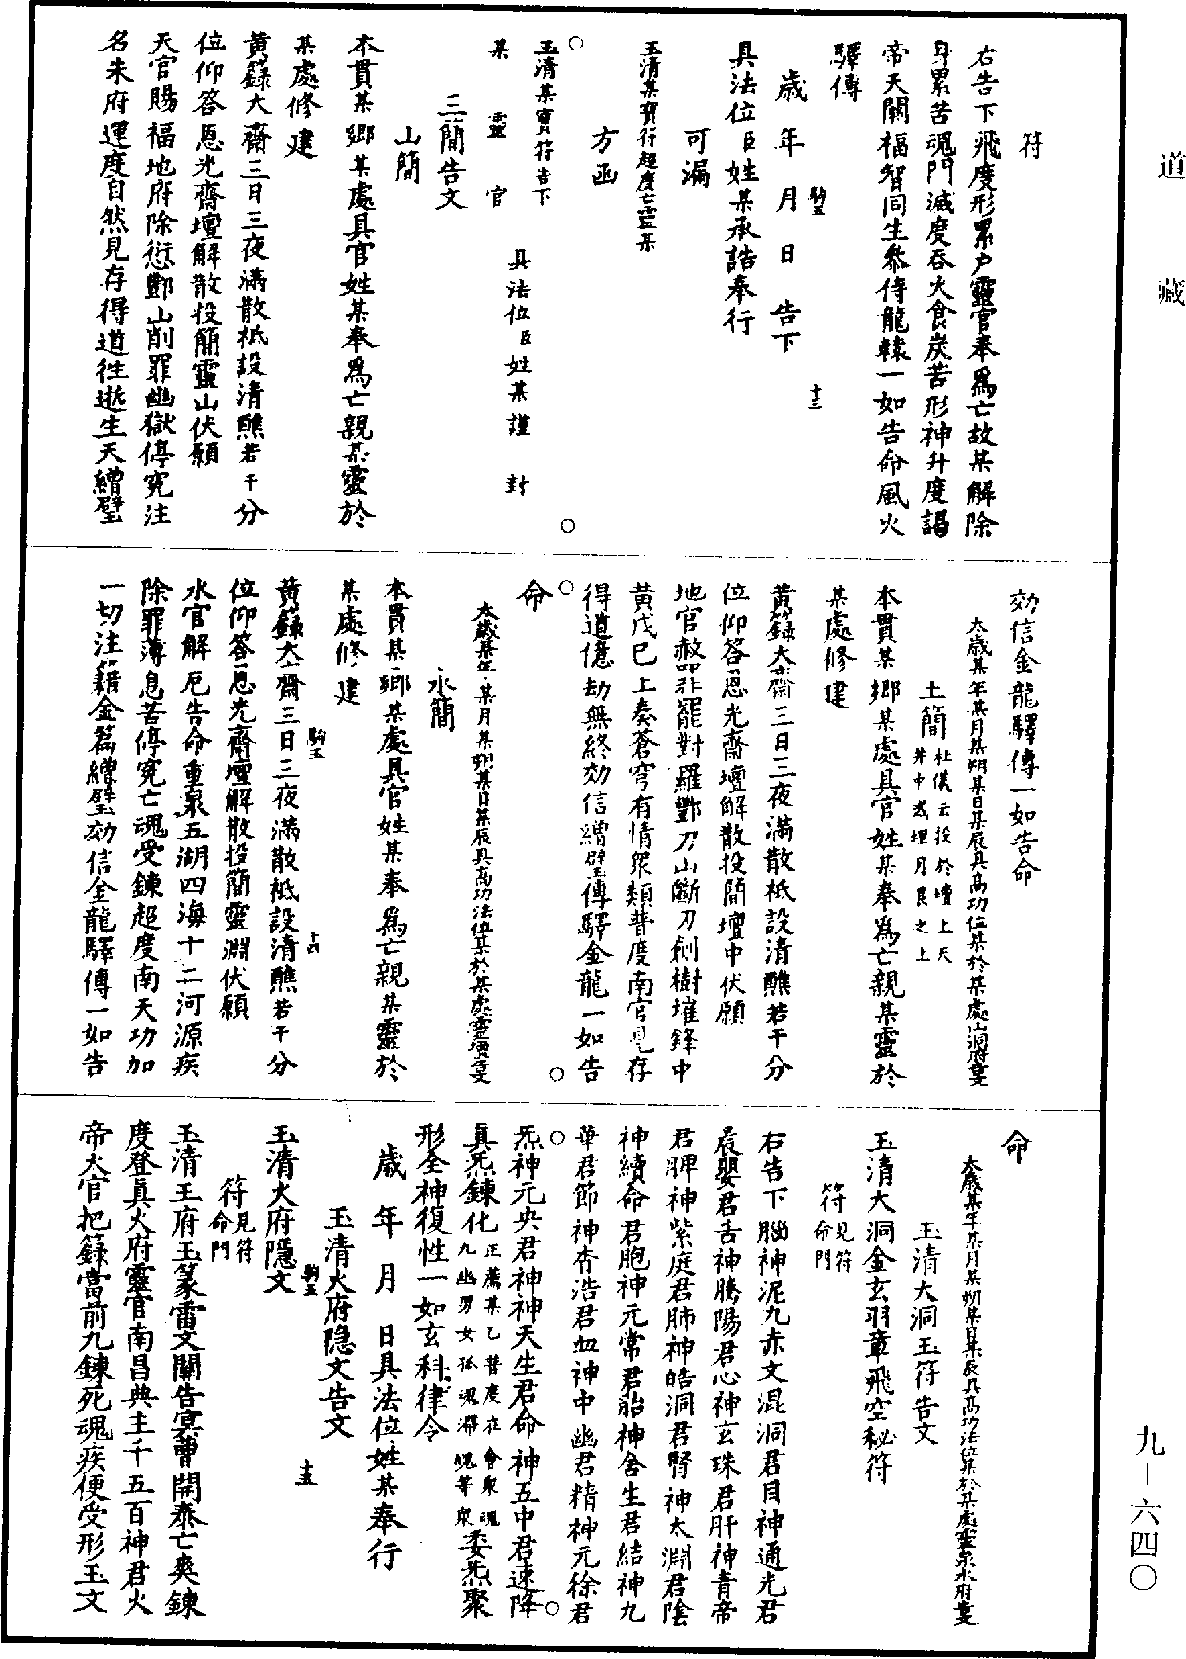 道藏
符
右告下飛度形累戶靈官奉爲亡故某解除
身累苦魂門滅度吞火食炭苦形神升度謁
帝天闕福智同生叅侍龍轅一如告命風火
驛傳
歲年月日告下
具法位臣姓某承誥奉行
可漏
玉清某寶符超度亡靈某
方函
玉清某寶符告下
某靈官
具法位臣姓某謹封
三簡告文
山簡
本貫某鄉某處具官姓某奉爲亡親某靈於
某處修建
黃籙大齋三日三夜滿散袛設清醮若干分
位仰答恩光齋壇解散投簡靈山伏願
天官賜福地府除愆酆山削罪幽獄停寃注
名朱府運度自然見存得道徃逝生天繒璧
効信金龍驛傳一如告命
太歲某年某月某朔某日某辰具高功位某於某處山洞府璧
土簡杜儀云投於壇上天井中或埋月艮之上
本貫某鄉某處具官姓某奉爲亡親某靈於
某處修建
黃籙大齋三日三夜滿散袛設清醮若干分
位仰答恩光齋壇解散投簡壇中伏願
地官赦罪罷對羅酆刀山斷刃劍樹摧鋒中
黃戊己上奏蒼穹有情衆類普度南宮見存
得道億劫無終効信繒璧傳驛金龍一如告
命
太歲某年某月某朔某日某辰具高功法位某於某處靈壇
水簡
本貫某鄉某處具官姓某奉爲亡親某靈於
某處修建
黃籙大齋三日三夜滿散袛設清醮若干分
位仰答恩光齋壇解散投簡靈淵伏願
水官解厄告命重泉五湖四海十二河源疾
除罪簿息苦停寃亡魂受鍊超度南天功加
一切注籍金篇繒璧効信金龍驛傳一如告
命
太歲某年某月某朔某日某辰具高功法位某於某處靈泉水府
玉清大洞玉符告文
玉清大洞金玄羽章飛空秘符
符見符命門
右告下腦神泥丸赤文混洞君目神通光君
晨嬰君舌神騰陽君心神玄珠君肝神青帝
君脾神紫庭君肺神皓洞君腎神太淵君陰
神續命君胞神元常君胎神舍生君結神九
華君節神杳浩君血神中幽君精神元徐君
炁神元央君神神天生君命神五中君速降
真炁鍊化正薦某乙普度在會衆魂九幽男女孤魂滯魄等衆委炁聚
形全神復性一如玄科律令
歲年月日具法位姓某奉行
玉清火府隱文告文
玉清火府隱文
符見符命門
玉清王府玉篆雷文關告冥曹開泰亡爽鍊
度登真火府靈官南昌典主千五百神君火
帝大官把籙當前九鍊死魂疾便受形玉文
九—六四〇